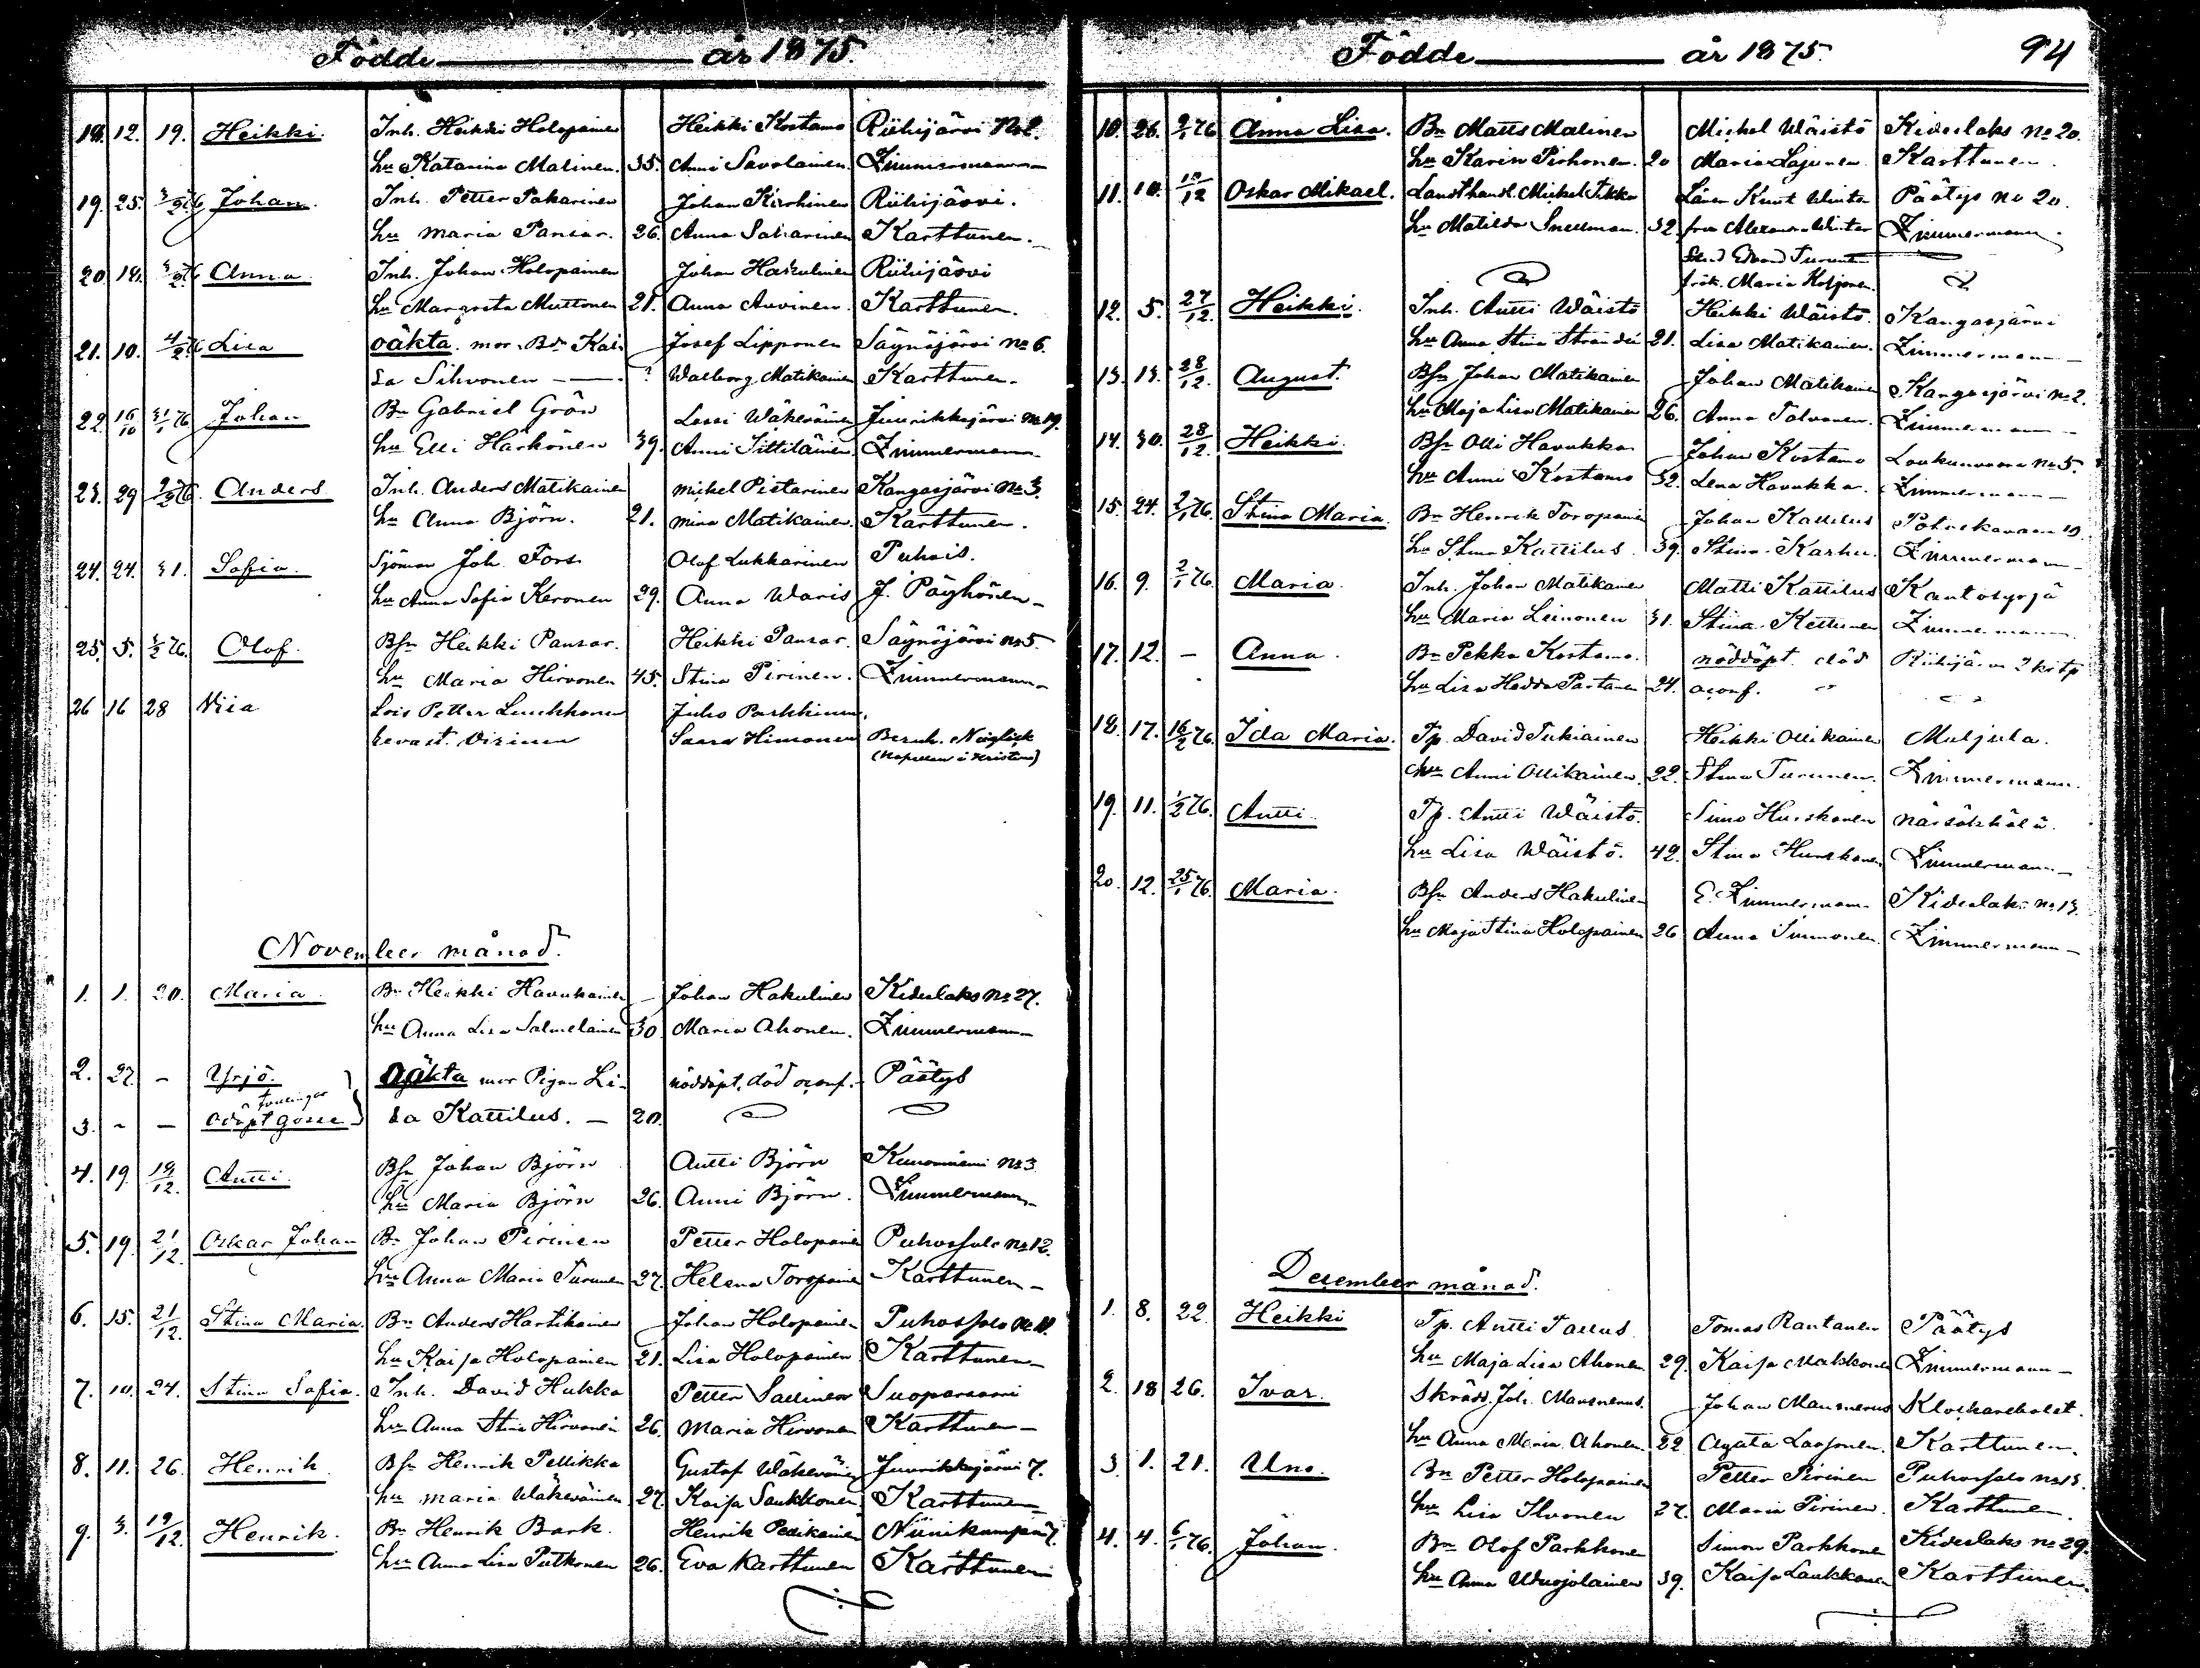 Födde år 1875.
18. 12. 19. Heikki. Inh. Heikki Holopainen Heikki Kostamo Riihijärvi No 2.
hu Katarina Malinen. 35. Anni Savolainen. Zimmermann
19. 25. 3/2 76 Johan. Inh. Petter Pakarinen Johan Kirshinen Riihijärvi.
hu Maria Pansar. 26. Anna Sakarinen Karttunen.
20 18. 3/2 76 Anna Inh. Johan Holopainen Johan Hakulinen Riihijärvi
hu Margreta Muttonen 21. Anna Auvinen. Karttunen.
21. 10. 4/2 76 Lisa oäkta. mor. Bdr Kai- Josef Lipponen Säynöjärvi No 6.
sa Sihvonen — ? Walborg Matikainen Karttunen.
22. 16/10 31/1 76 Johan Bn Gabriel Grön Lassi Wäkeväinen Juurikkajärvi No 19.
hu Elli Härkönen 39. Anni Tiittiläinen Zimmermann
23. 29 2/2 76. Anders Inh. Anders Matikainen Mickel Pistarinen Kangasjärvi No 3.
hu Anna Björn. 21. Mina Matikainen. Karttunen.
24. 24. 31. Sofia. Sjöman Joh. Fors Olof Lukkarinen Puhois.
hu Anna Sofia Keronen 29. Anna Waris J. Päyhönen
25. 5. 3/2 76. Olof. Bsn Heikki Pansar. Heikki Pansar. Säynöjärvi No 5.
hu Maria Hirvonen 45. Stina Pirinen. Zimmermann
26 16 28 Lois Petter Juho Parkkinen
Saara Himonen Bernh.
November månad.
1. 1. 20. Maria Bn Heikki Havukainen Johan Hakulinen Kideslaks No 27.
hu Anna Lisa Salmelainen 30. Maria Ahonen. Zimmermann
2. 27. – Yrjö. Oäkta mor Pigan Li- nöddöpt. död oconf. Päätys
tvillingar
3. – – Odöpt gosse sa Kattilus. — 20.
4. 19. 19/12. Antti. Bsn Johan Björn Antti Björn Kunonniemi No 3
hu Maria Björn 26. Anni Björn. Zimmermann
5. 19. 21/12. Oskar Johan Bn Johan Pirinen Petter Holopainen Puhossalo No 12.
hu Anna Maria Turunen 27. Helena Toropainen Karttunen
6. 15. 21/12. Stina Maria. Bn Anders Hartikainen Johan Holopainen Puhossalo No 11.
hu Kaisa Holopainen 21. Lisa Holopainen Karttunen
7. 10. 24. Stina Sofia. Inh. David Hukka Petter Sallinen Suoparsaari
hu Anna Stina Hirvonen 26. Maria Hirvonen Karttunen
8. 11. 26. Henrik Bsn Henrik Pellikka Gustaf Wäkeväinen Juurikkajärvi 7.
hu Maria Wäkeväinen 27. Kaisa Saukkonen Karttunen
9. 3. 19/12. Henrik. Bn Henrik Bark. Henrik Pesikainen Niinikumpu 7.
hu Anna Lisa Putkonen 26. Eva Karttunen Karttunen
Födde år 1875. 94
10. 26. 2/1 76 Anna Lisa. Bn Matts Malinen Mickel Wäistö Kideslaks No 20.
hu Karin Pirhonen. 20 Maria Lajunen Karttunen.
11. 10. 10/12 Oskar Mikael. Landthandl. Mickel Tikka Länsm Knut Winter Päätys No 20.
hu Matilda Snellman. 32. fru Alexandra Winter Zimmermann.
Stud Edvard Turunen
frök. Maria Koljonen.
12. 5. 27/12. Heikki. Inh. Antti Wäistö Heikki Wäistö. Kangasjärvi
hu Anna Stina Strandén 21. Lisa Matikainen. Zimmermann
13. 13. 28/12. August. Bsn Johan Matikainen Johan Matikainen Kangasjärvi No 2.
hu Maja Lisa Matikainen 26. Anna Tolvanen. Zimmermann
14. 30. 28/12. Heikki. Bsn Olli Havukka Johan Kostamo Loukunvaara No 5.
hu Anni Kostamo 32. Lena Havukka. Zimmermann
15. 24. 2/1 76. Stina Maria Bn Henrik Toropainen Johan Kattilus Potoskavaara 10.
hu Stina Kattilus 39. Stina Karhu. Zimmermann
16. 9. 2/1 76. Maria. Inh. Johan Matikainen Matti Kattilus Kantosyrjä
hu Maria Leinonen 31. Stina Kettunen Zimmermann
17. 12. – Anna. Bn Pekka Kostamo. nöddöpt. död Riihijärvi 2 kstp
hu Lisa Hedda Partanen 24. oconf.
18. 17. 16/2 76. Ida Maria. Tp. David Tukiainen Heikki Ollikainen Muljula.
hu Anni Ollikainen. 22. Stina Turunen. Zimmermann.
19. 11. 1/2 76. Antti. Tp. Antti Wäistö. Simo Hurskanen Närsäkkälä.
hu Lisa Wäistö. 42. Stina Hurskanen Zimmermann
20. 12. 25/1 76. Maria. Bsn Anders Hakulinen E. Zimmermann Kideslaks No 13.
hu Maja Stina Holopainen 26 Anna Simmonen. Zimmermann
December månad.
1. 8. 22. Heikki Tp. Antti Tallus Tomas Rautanen Päätys
hu Maja Lisa Ahonen 29. Kaisa Makkonen Zimmermann
2. 18 26. Ivar. Skrädd. Joh. Mansnerus. Johan Mansnerus Klockarebolet.
hu Anna Maria Ahonen. 22 Agata Laasonen. Karttunen.
3. 1. 21. Uno. Bn Petter Holopainen Petter Pirinen Puhossalo No 13.
hu Lisa Ilvonen 27. Maria Pirinen. Karttunen.
4. 4. 6/1 76. Johan. Bn Olof Parkkonen Simon Parkkonen Kideslaks No 29.
hu Anna Wuojolainen 39. Kaisa Laukkanen Karttunen.